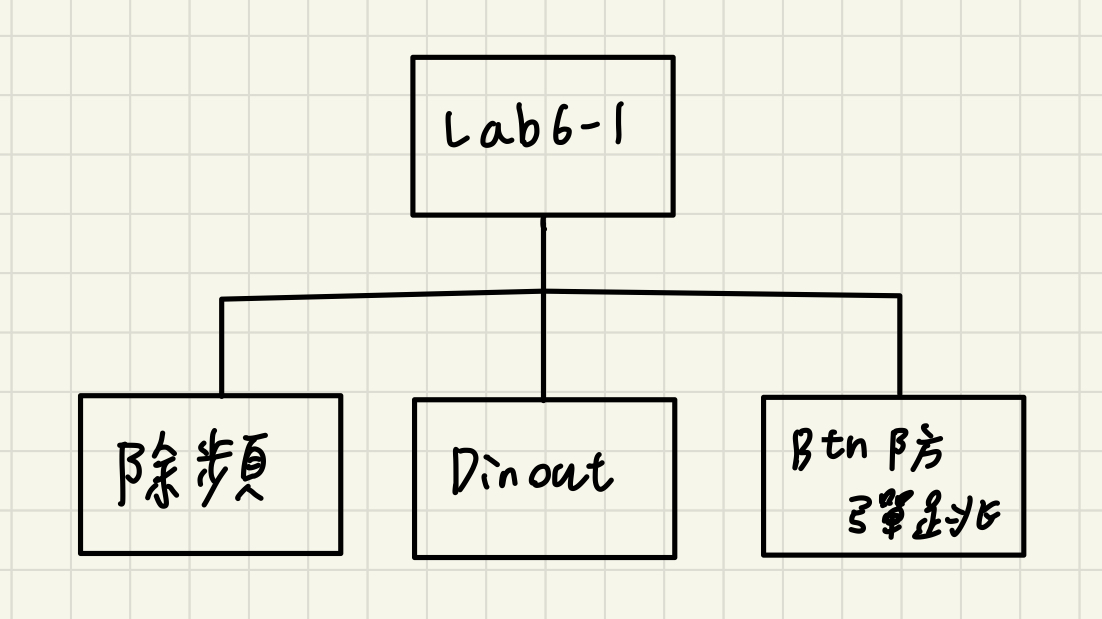 Lab6-1
除頻
Dinout
Btn 防
彈跳